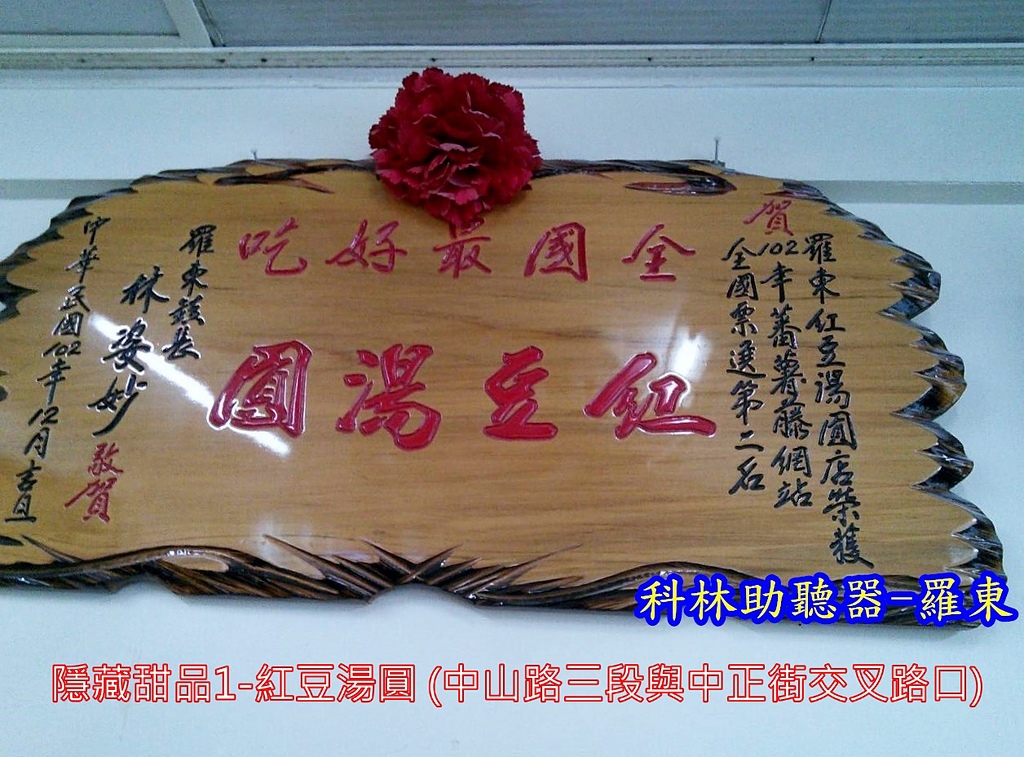 賀
羅東紅豆湯圓店榮獲
102年蕃薯藤網站
全國票選第二名
全國最好吃
紅豆湯圓
羅東鎮長
林姿妙
敬賀
中華民國102年12月吉旦
科林助聽器-羅東
隱藏甜品1-紅豆湯圓 (中山路三段與中正街交叉路口)